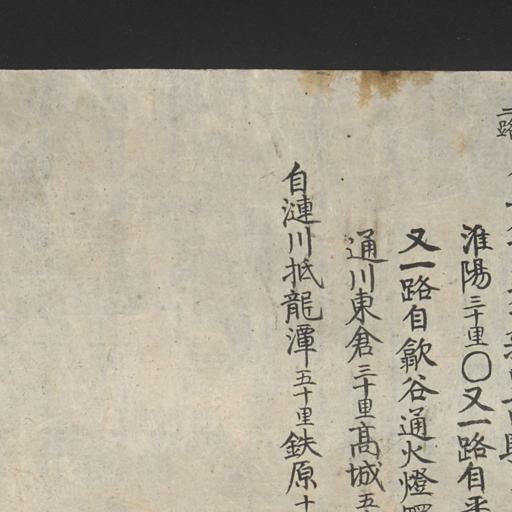 二路
淮陽三十里〇又一路自平
又一路自歙谷通火燈
通川東倉三十里高城五
自漣川抵龍潭五十里鉄原十